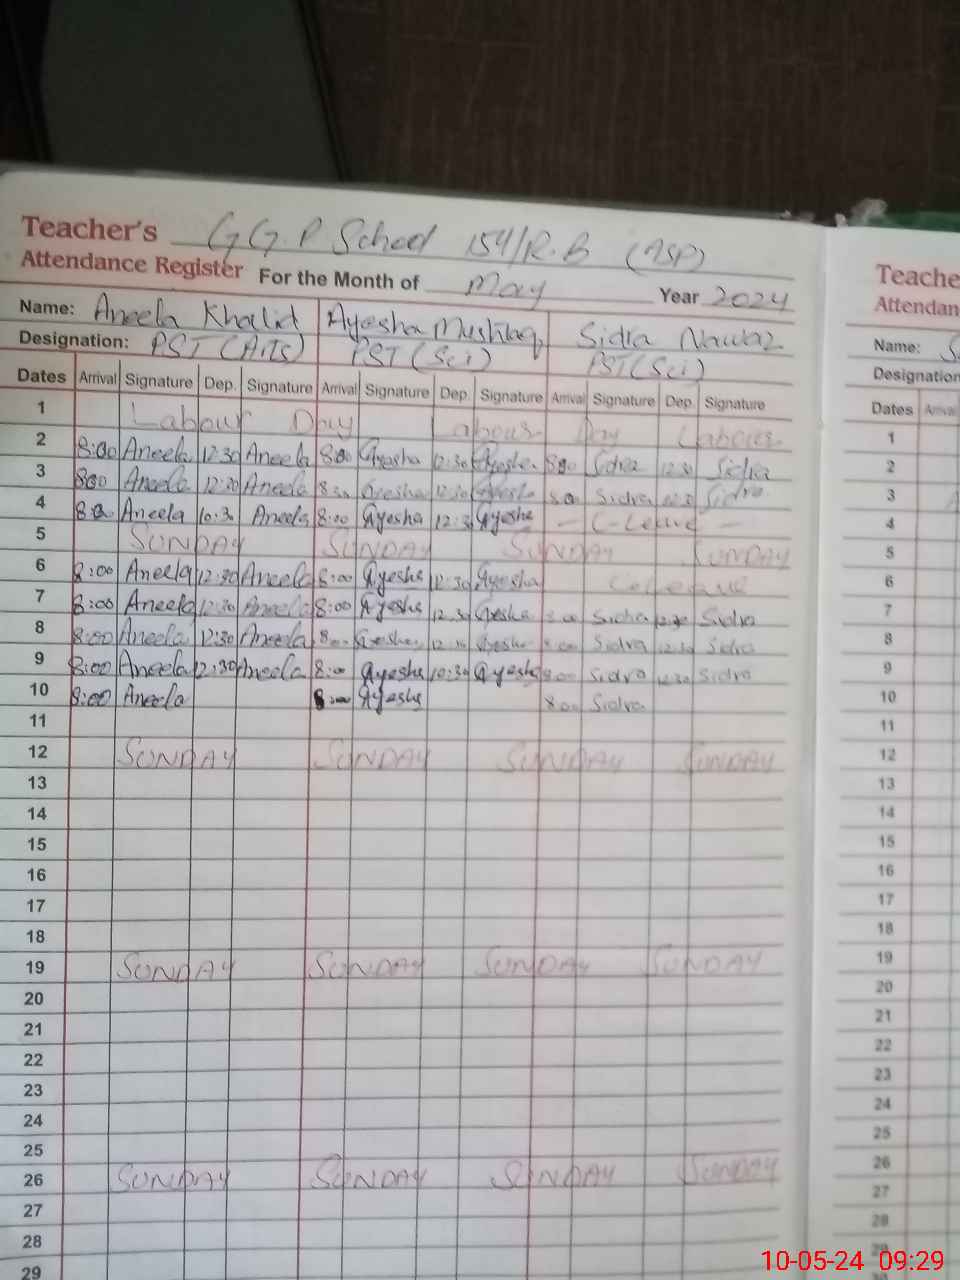 Teacher's G G.P School 154/R.B (ASP)
Attendance Register For the Month of May Year 2024
Name: Aneela Khalid Ayesha Mushtaq Sidra Nawaz
Designation: PST (Arts) PST (Sci) PST (Sci)
Dates Arrival Signature Dep. Signature Arrival Signature Dep. Signature Arrival Signature Dep. Signature
1 Labour Day Labour Day Labour
2 8:00 Aneela 12:30 Aneela 8:00 Ayesha 12:30 Ayesha 8:00 Sidra 12:30 Sidra
3 8:00 Aneela 12:30 Aneela Ayesha 12:30 Ayesha 8:00 Sidra Sidra
4 Aneela 10:30 Aneela 8:00 Ayesha Ayesha - C-Leave -
5 SUNDAY SUNDAY SUNDAY SUNDAY
6 8:00 Aneela 12:30 Aneela 8:00 Ayesha 12:30 Ayesha C-Leave
7 8:00 Aneela 12:30 Aneela 8:00 Ayesha 12:30 Ayesha 8:00 Sidra 12:30 Sidra
8 8:00 Aneela 12:30 Aneela 8:00 Ayesha 12:30 Ayesha 8:00 Sidra 12:30 Sidra
9 8:00 Aneela 12:30 Aneela 8:00 Ayesha 10:30 Ayesha 8:00 Sidra 12:30 Sidra
10 8:00 Aneela 8:00 Ayesha 8:00 Sidra
11
12 SUNDAY SUNDAY SUNDAY SUNDAY
13
14
15
16
17
18
19 SUNDAY SUNDAY SUNDAY SUNDAY
20
21
22
23
24
25
26 SUNDAY SUNDAY SUNDAY SUNDAY
27
28
29
Teache
Attendan
Name: S
Designation
Dates Arrival
1
2
3
4
5
6
7
8
9
10
11
12
13
14
15
16
17
18
19
20
21
22
23
24
25
26
27
28
29
10-05-24 09:29